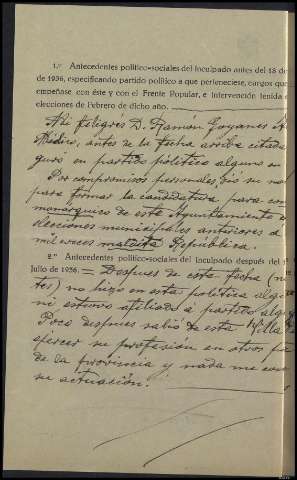 1.º Antecedentes político-sociales del inculpado antes del 18 de
de 1936, especificando partido político a que perteneciese, cargos que
empeñase con éste y con el Frente Popular, e intervención tenida e
elecciones de Febrero de dicho año.
Mi feligrés D. Ramón Goyanes
Médico, antes de la fecha arriba citada
guró en partido político alguno en
Por compromisos personales, dió su no
para formar la candidatura para con
monárquicos de este Ayuntamiento
elecciones municipales anteriores a
mil veces maldita República.
2.º Antecedentes político-sociales del inculpado después del 1
Julio de 1936. = Despues de esta fecha (
tes) no hizo en esta política algu
ni estuvo afiliado a partido alg
Poco despues salió de esta Villa
ejercer su profesión en otros
de la provincia y nada me con
su actuación.